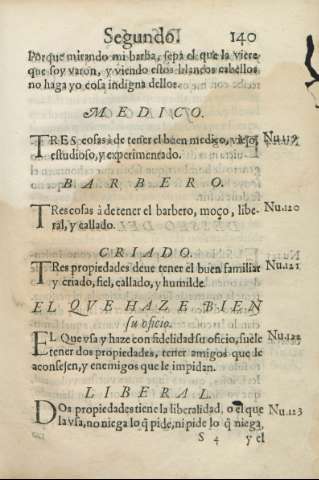 Segundo. 140
Porque mirando mi barba, sepa el que la viere
que soy varon, y viendo estos blancos cabellos
no haga yo cosa indigna dellos.
MEDICO.
TRES cosas à de tener el buen medico, viejo, Nu.119
estudioso, y experimentado.
BARBERO.
Tres cosas à de tener el barbero, moço, libe- Nu.120
ral, y callado.
CRIADO.
TRes propiedades deve tener el buen familiar Nu.121
y criado, fiel, callado, y humilde.
EL QVE HAZE BIEN
su oficio.
EL Que vsa y haze con fidelidad su oficio, suele Nu.122
tener dos propiedades, tener amigos que le
aconsejen, y enemigos que le impidan.
LIBERAL.
DOs propiedades tiene la liberalidad, o el que Nu.123
la vsa, no niega lo q̃ pide, ni pide lo q̃ niega,
S 4 y el